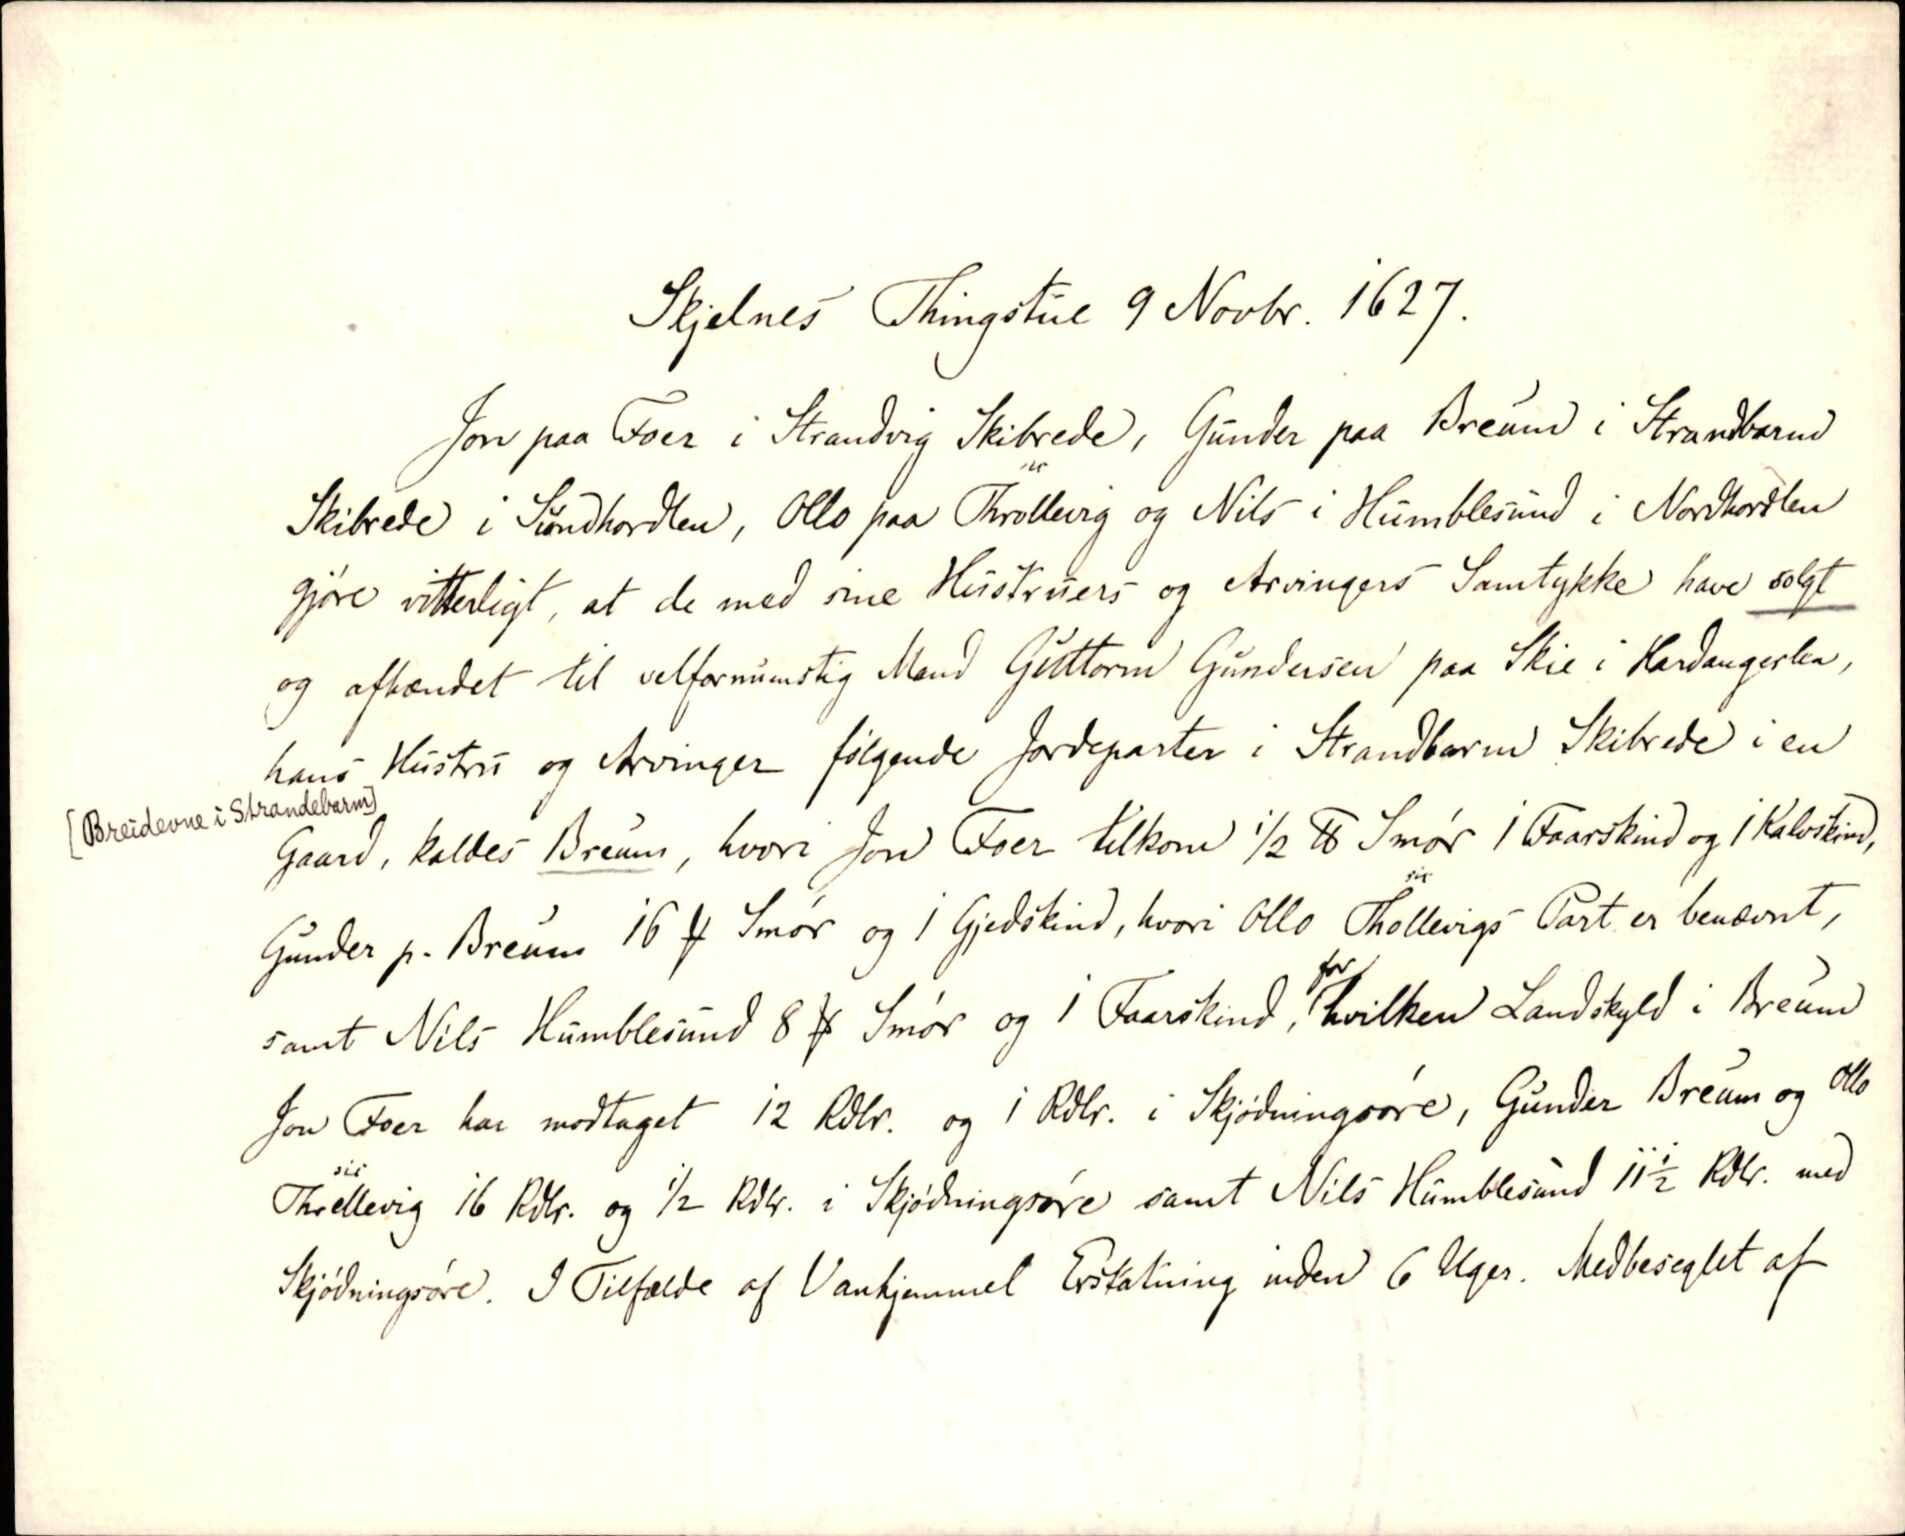 Skjelnes Thingstue 9 Novbr. 1627.
Jon paa Foer i Strandvig Skibrede, Gunder paa Breum i Strandbarm
Skibrede i Sundhordlen, Ollo paa Throllevig og Nils i Humblesund i Nordhordlen
gjöre vitterligt, at de med sine Hustruers og Arvingers Samtykke have solgt
og afhændet til velfornumstig Mand Guttorm Gundersen paa Skie i Hardangerlen,
hans Hustru og Arvinger følgende Jordeparter i Strandbarm Skibrede i en
[Breidevne i Strandebarm]
Gaard, kaldes Breum, hvori Jon Foer tilkom 1/2 ℔ Smör 1 Faarskind og 1 Kalvskind,
sic
Gunder p. Breum 16 ℔ Smör og 1 Gjedskind, hvori Ollo Thollevigs Part er benævnt,
samt Nils Humblesund 8 ℔ Smör og 1 Faarskind, for hvilken Landskyld i Breum
Jon Foer har modtaget 12 Rdlr. og 1 Rdlr. i Skjödningsöre, Gunder Breum og Ollo
sic
Threllevig 16 Rdlr. og 1/2 Rdlr. i Skjödningsöre samt Nils Humblesund 11 1/2 Rdlr. med
Skjödningsöre. I Tilfælde af Vanhjemmel Erstatning inden 6 Uger. Medbeseglet af